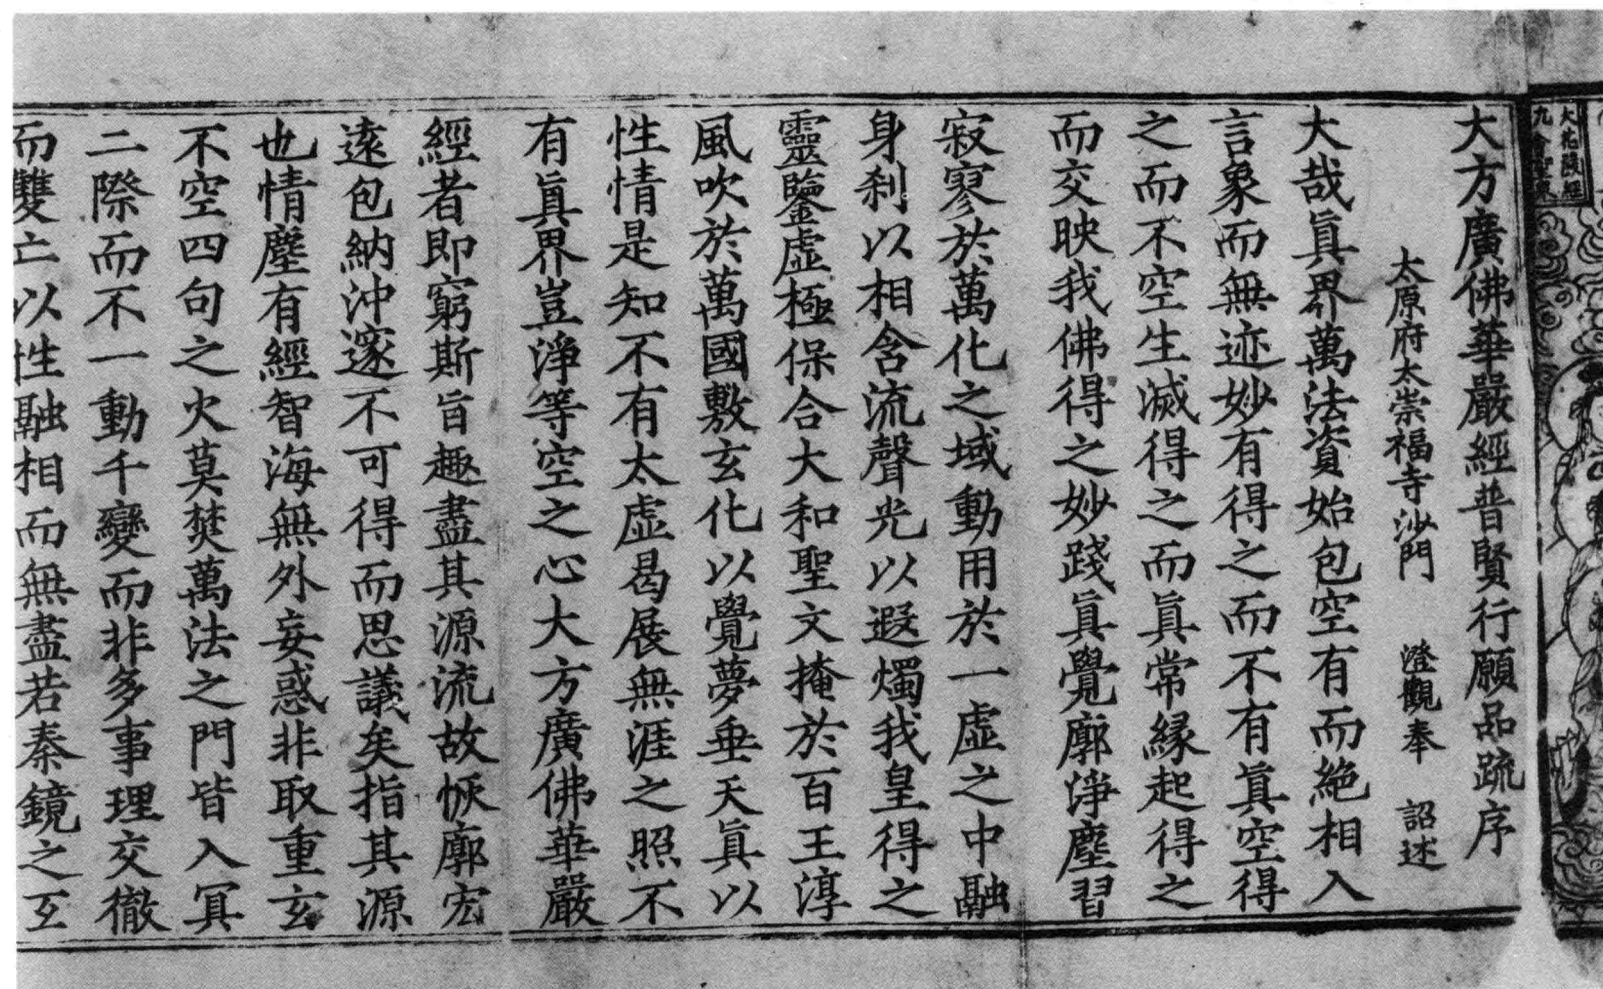 大花嚴經
九會聖衆
大方廣佛華嚴經普賢行願品疏序
太原府太崇福寺沙門 澄觀奉 詔述
大哉眞界萬法資始包空有而絶相入
言象而無迹妙有得之而不有眞空得
之而不空生滅得之而眞常緣起得之
而交映我佛得之妙踐眞覺廓淨塵習
寂寥於萬化之域動用於一虛之中融
身刹以相含流聲光以遐燭我皇得之
靈鑒虛極保合大和聖文掩於百王淳
風吹於萬國敷玄化以覺夢垂天眞以
性情是知不有太虛曷展無涯之照不
有眞界豈淨等空之心大方廣佛華嚴
經者即窮斯旨趣盡其源流故恢廓宏
遠包納沖邃不可得而思議矣指其源
也情塵有經智海無外妄惑非取重玄
不空四句之火莫焚萬法之門皆入冥
二際而不一動千變而非多事理交徹
而雙亡以性融相而無盡若秦鏡之互